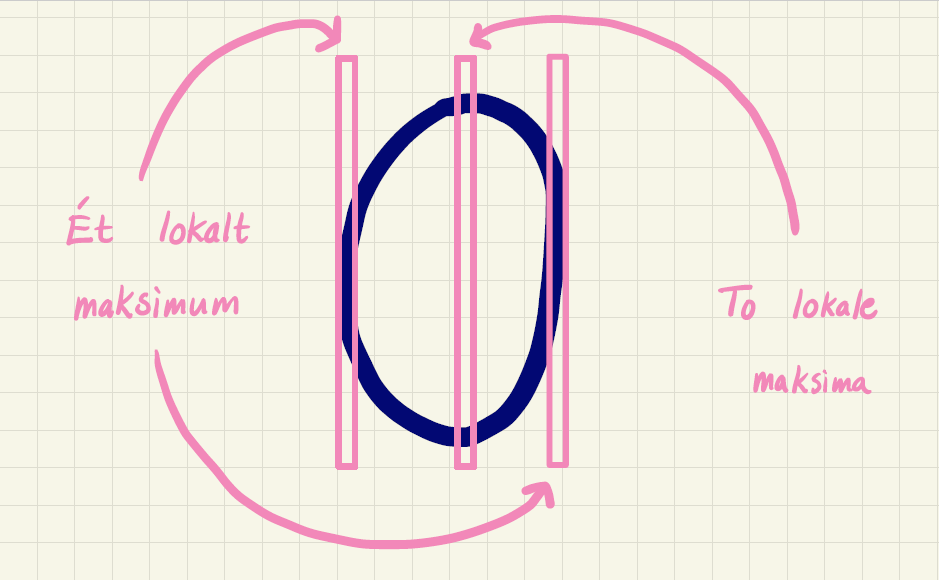 Ét lokalt
maksimum
To lokale
maksima